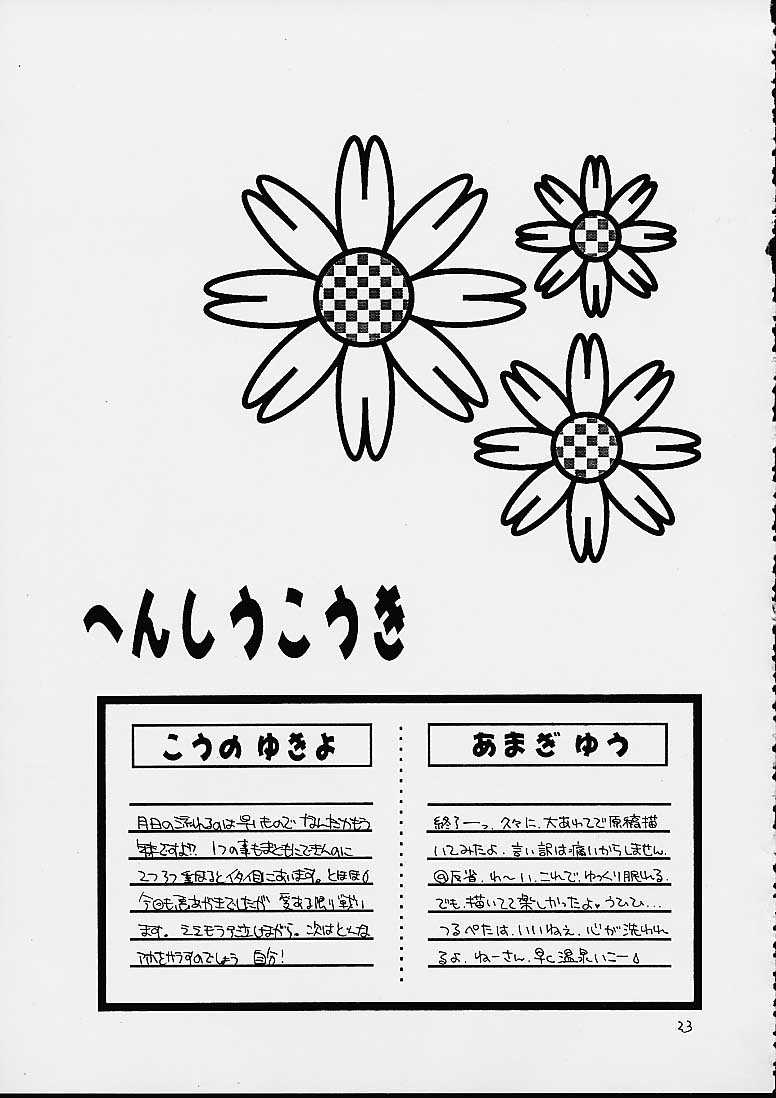 へんしうこうき
こうの ゆきよ
月日の流れるのは早いもので なんだかもう
年末ですよ!? 1つの事もまともにできんのに
2つ3つ重なるとイタイ目にあいます。とほほ
今回も悪あがきでしたが 愛ある限り戦い
ます。ミミモラ 泣しながら。次はどんな
をやらかすのでしょう 自分!
あまぎ ゆう
終了ーっ。久々に、大あわてで原稿描
いてみたよ。言い訳は痛いからしません。
反省。わ〜い、これで、ゆっくり眠れる。
でも、描いてて楽しかったよ♥うひひ…
つるぺたは、いいねぇ、心が洗われ
るよ。ねーさん、早く温泉いこー♪
23